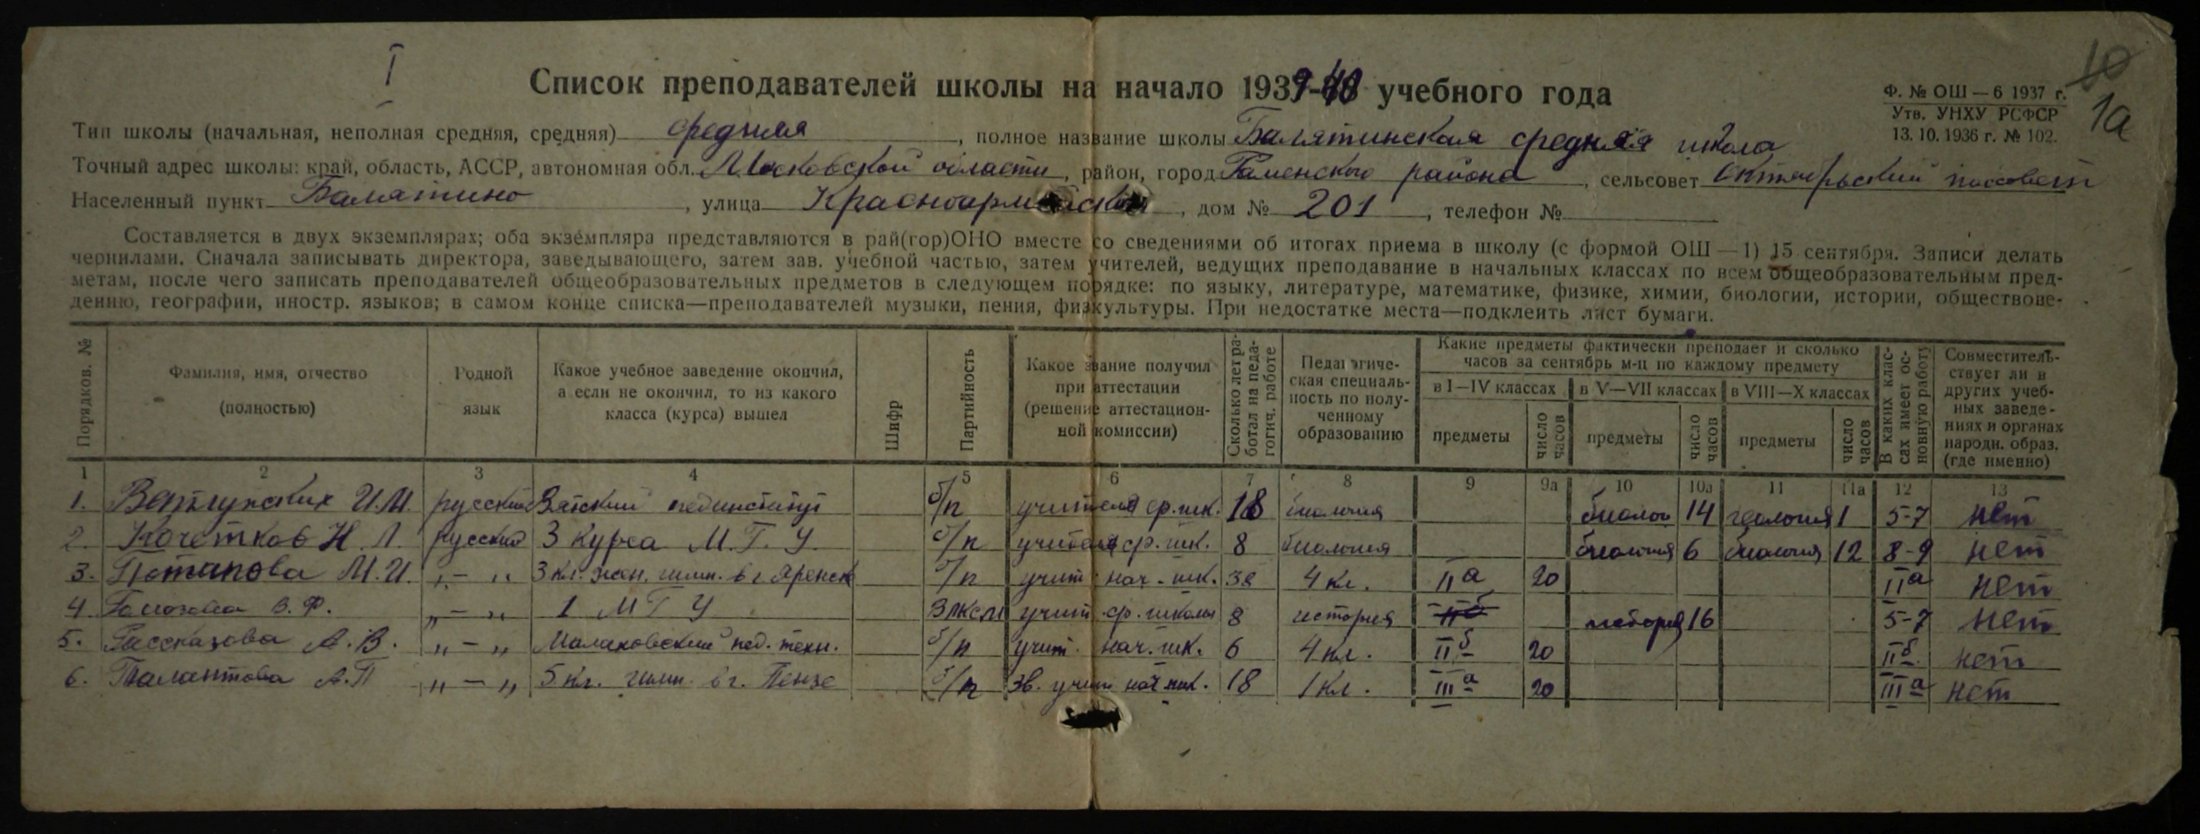 I
10
1а
Список преподавателей школы на начало 1939-40 учебного года
Ф. № ОШ — 6 1937 г.
Утв. УНХУ РСФСР
13. 10. 1936 г. № 102.
Тип школы (начальная, неполная средняя, средняя) средняя, полное название школы Балятинская средняя школа
Точный адрес школы: край, область, АССР, автономная обл. Московской области, район, город Раменского района, сельсовет Октябрьский поссовет
Населенный пункт Балятино, улица Красноармейской, дом № 201, телефон №
Составляется в двух экземплярах; оба экземпляра представляются в рай(гор)ОНО вместе со сведениями об итогах приема в школу (с формой ОШ — 1) 15 сентября. Записи делать
чернилами. Сначала записывать директора, заведывающего, затем зав. учебной частью, затем учителей, ведущих преподавание в начальных классах по всем общеобразовательным пред-
метам, после чего записать преподавателей общеобразовательных предметов в следующем порядке: по языку, литературе, математике, физике, химии, биологии, истории, обществове-
дению, географии, иностр. языков; в самом конце списка—преподавателей музыки, пения, физкультуры. При недостатке места—подклеить лист бумаги.
Порядков. №
Фамилия, имя, отчество
(полностью)
Родной
язык
Какое учебное заведение окончил,
а если не окончил, то из какого
класса (курса) вышел
Шифр
Партийность
Какое звание получил
при аттестации
(решение аттестацион-
ной комиссии)
Сколько лет ра-
ботал на педа-
гогич. работе
Педагогиче-
ская специаль-
ность по полу-
ченному
образованию
Какие предметы фактически преподает и сколько
часов за сентябрь м-ц по каждому предмету
в I—IV классах
в V—VII классах
в VIII—X классах
предметы
число часов
предметы
число часов
предметы
число часов
В каких клас-
сах имеет ос-
новную работу
Совместитель-
ствует ли в
других учеб-
ных заведе-
ниях и органах
народн. образ.
(где именно)
1 2 3 4 5 6 7 8 9 9а 10 10а 11 11а 12 13
1. Ветлужских И.М. русский Вятский пединститут б/п учителя ср. шк. 18 биология биолог 14 геология 1 5-7 нет
2. Кочетков Н. Л. русский 3 курса М. Г. У. б/п учителя ср. шк. 8 биология биология 6 биология 12 8-9 нет
3. Потапова М.И. „ — „ 3 кл. жен. гимн. в г. Яренск б/п учит. нач. шк. 38 4 кл. II а 20 II а нет
4. В. Ф. „ — „ 1 МГУ ВЛКСМ учит. ср. школы 8 история II б история 16 5-7 нет
5. Рассказова А. В. „ — „ Малаховский пед. техн. б/п учит. нач. шк. 6 4 кл. II б 20 II б. нет
6. Талантова А.П „ — „ 5 кл. гимн. в г. Пензе б/п зв. учит нач. шк. 18 1 кл. III а 20 III а нет